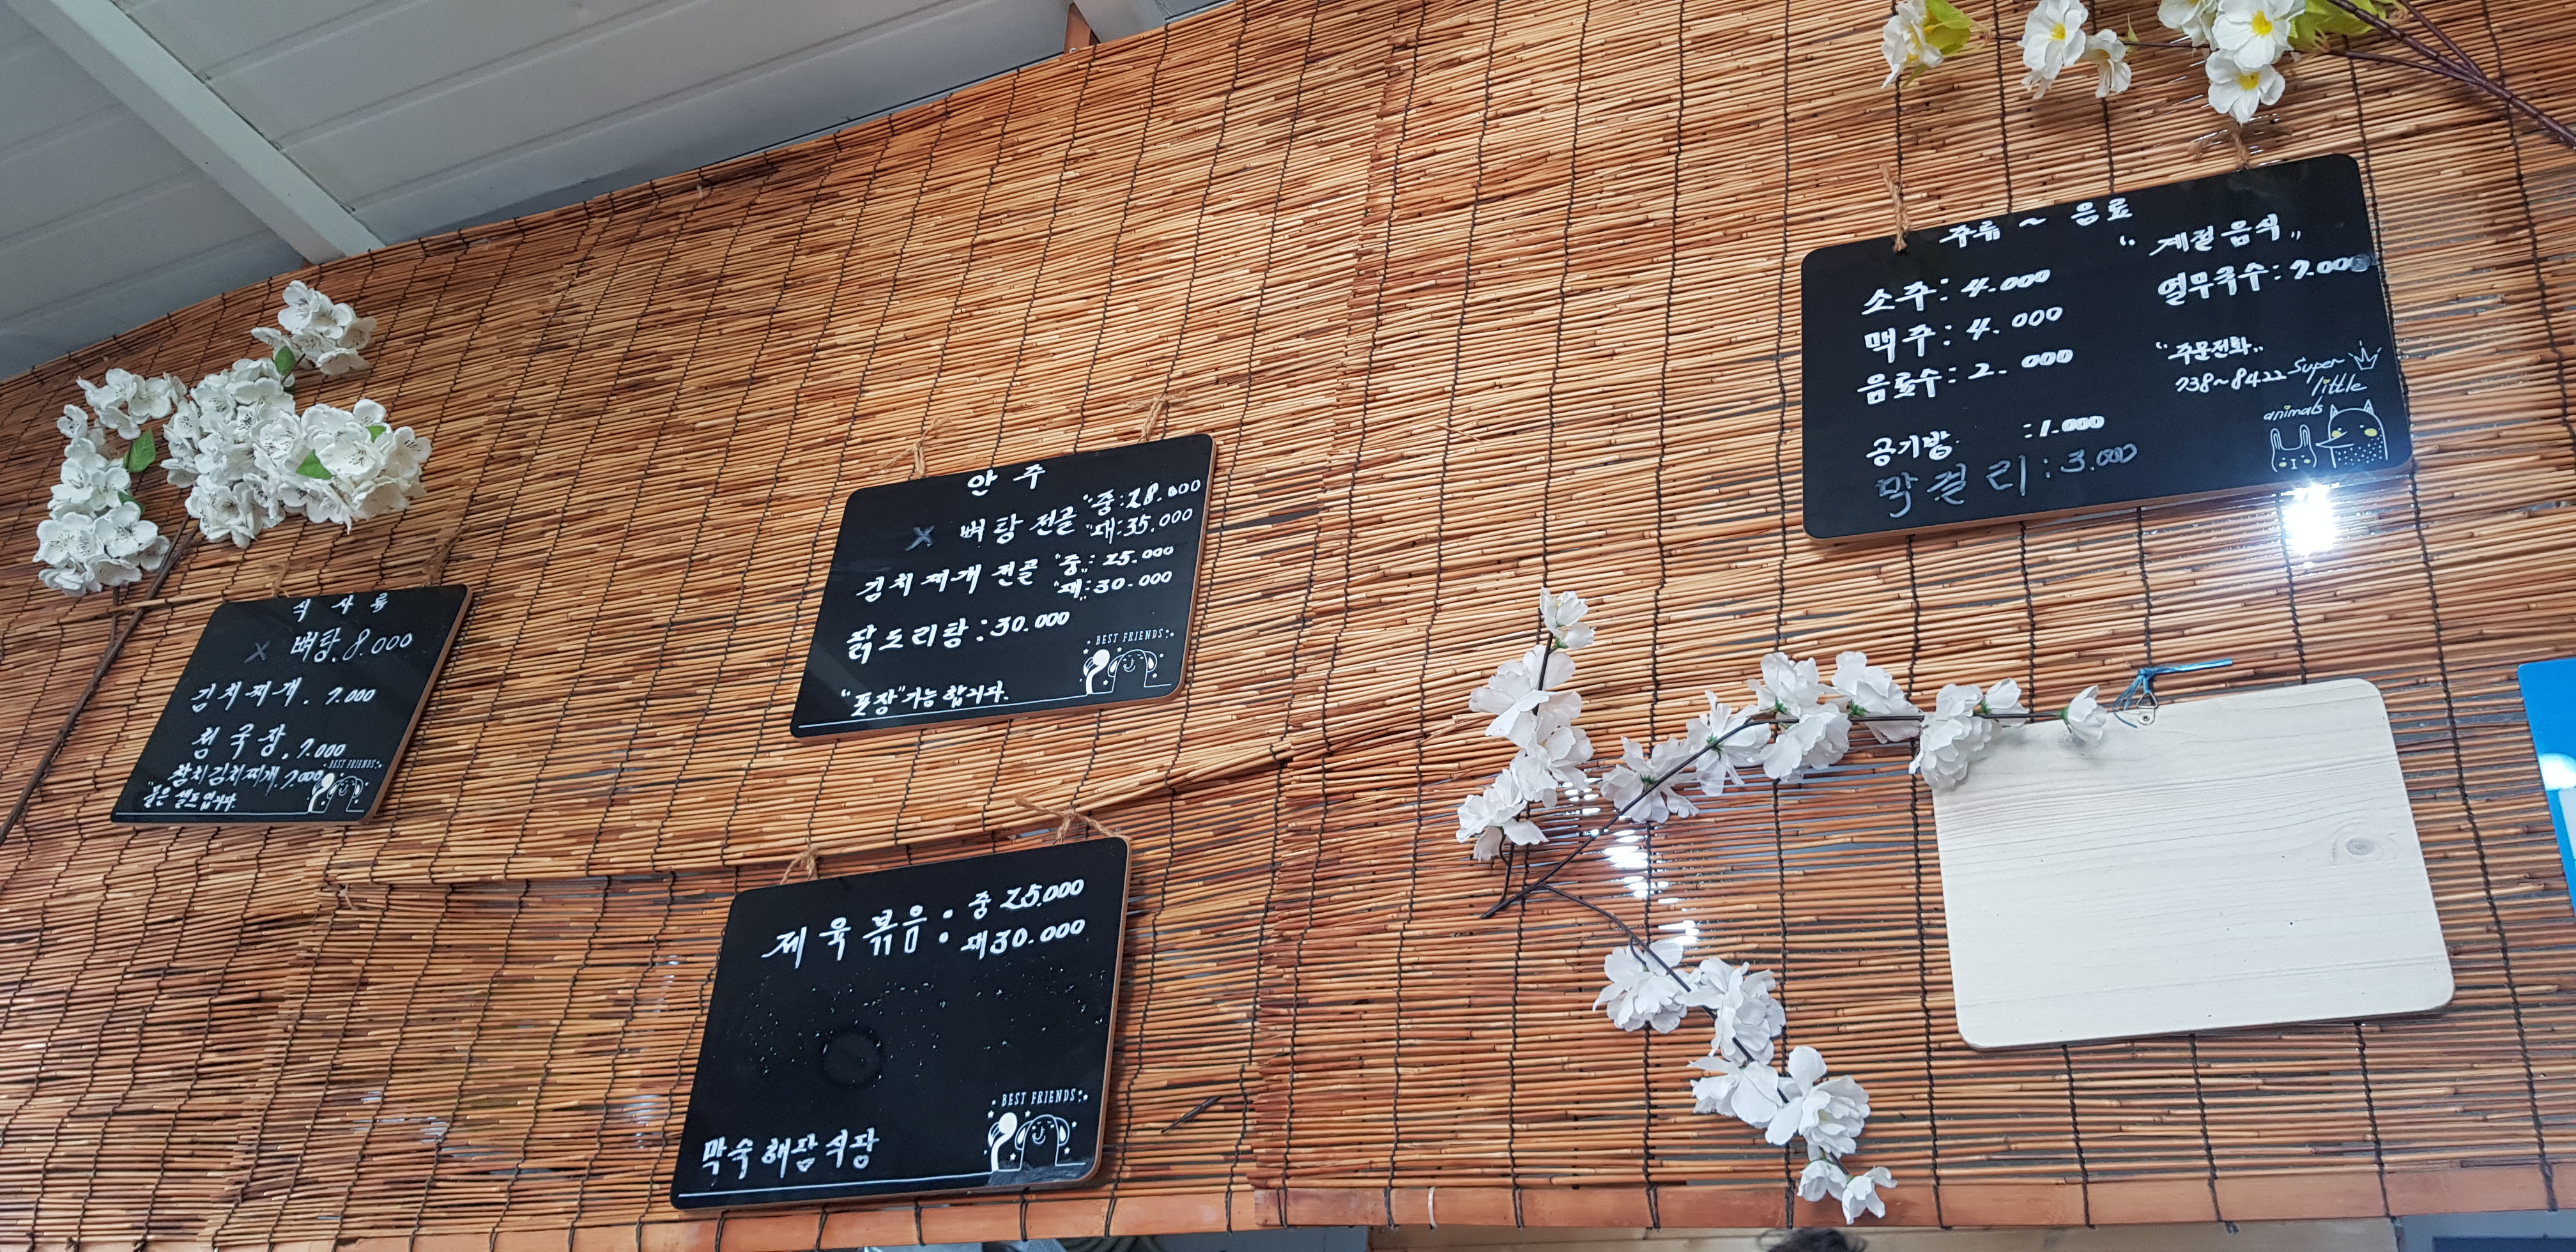 식사류
X 뼈탕. 8.000
김치찌개. 7.000
청국장. 7.000
참치김치찌개. 7.000
"물은 셀프입니다.
BEST FRIENDS
안주
X 뼈탕전골 "중": 28.000
"대": 35.000
김치찌개전골 "중": 25.000
"대": 30.000
닭도리탕: 30.000
"포장"가능합니다.
BEST FRIENDS
제육볶음: 중 25.000
대 30.000
BEST FRIENDS
막숙해장식당
주류 ~ 음료
소주: 4.000
맥주: 4.000
음료수: 2.000
공기밥 : 1.000
막걸리: 3.000
"계절음식"
열무국수: 7.000
"주문전화"
738~8422
Super
little
animals